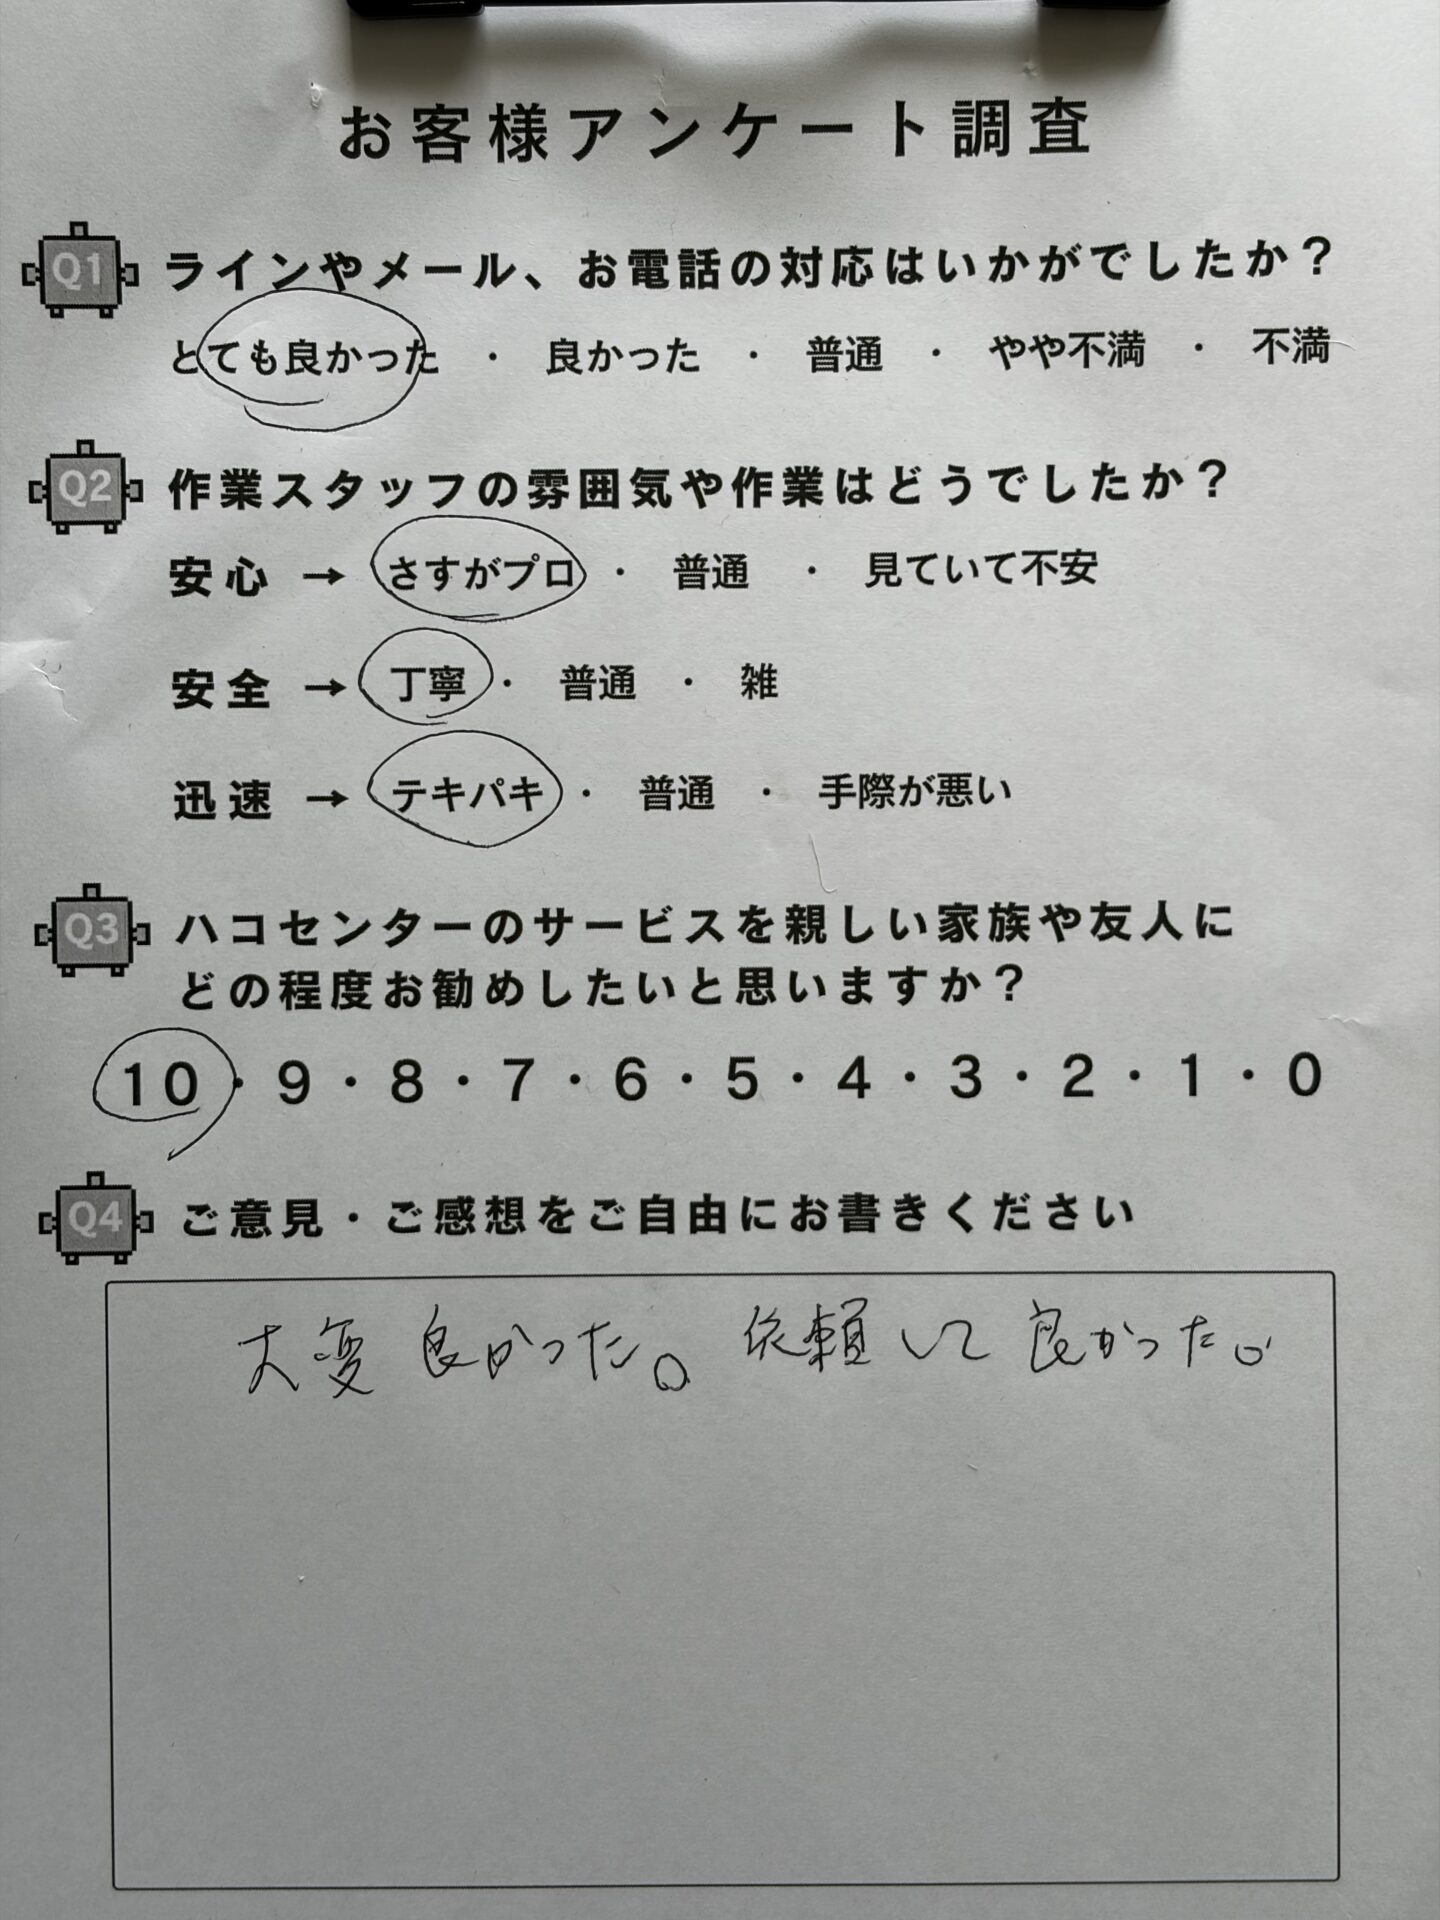 お客様アンケート調査
Q1 ラインやメール、お電話の対応はいかがでしたか？
とても良かった ・ 良かった ・ 普通 ・ やや不満 ・ 不満
Q2 作業スタッフの雰囲気や作業はどうでしたか？
安心 → さすがプロ ・ 普通 ・ 見ていて不安
安全 → 丁寧 ・ 普通 ・ 雑
迅速 → テキパキ ・ 普通 ・ 手際が悪い
Q3 ハコセンターのサービスを親しい家族や友人に
どの程度お勧めしたいと思いますか？
10・9・8・7・6・5・4・3・2・1・0
Q4 ご意見・ご感想をご自由にお書きください
大変 良かった。依頼して良かった。